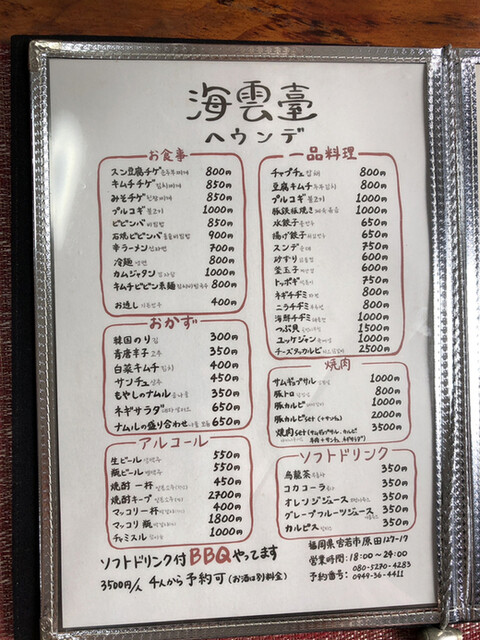 海雲臺
ヘウンデ
お食事
スン豆腐チゲ 순두부찌개 800円
キムチチゲ 김치찌개 850円
みそチゲ 된장찌개 850円
プルコギ 불고기 1000円
ビビンバ 비빔밥 850円
石焼ビビンバ 돌솥비빔밥 900円
辛ラーメン 신라면 700円
冷麺 냉면 800円
カムジャタン 감자탕 1000円
キムチビビン素麺 800円
お通し 400円
おかず
韓国のり 김 300円
青唐辛子 고추 350円
白菜キムチ 김치 400円
サンチュ 상추 450円
もやしのナムル 콩나물 350円
ネギサラダ 650円
ナムルの盛り合わせ 650円
アルコール
生ビール 生맥주 550円
瓶ビール 병맥주 550円
焼酎 一杯 450円
焼酎キープ 2700円
マッコリ一杯 400円
マッコリ 瓶 1800円
チャミスル 1000円
一品料理
チャプチェ 잡채 800円
豆腐キムチ 두부김치 800円
プルコギ 불고기 1000円
豚鉄板焼き 제육볶음 1000円
水餃子 물만두 650円
揚げ餃子 튀김만두 650円
スンデ 순대 750円
砂ずり 600円
煮玉子 600円
トッポギ 떡볶이 750円
ネギチヂミ 파전 800円
ニラチヂミ 부추전 800円
海鮮チヂミ 해물전 1000円
つぶ貝 1500円
ユッケジャン 육개장 1000円
チーズタッカルビ 2500円
焼肉
サムギョプサル 삼겹살 1000円
豚トロ 800円
豚カルビ 1000円
豚カルビset (+サンチュ) 2000円
焼肉set (サムギョプサル、カルビ 3500円
牛肉+サンチュ、ネギサラダ)
ソフトドリンク
烏龍茶 350円
コカコーラ 콜라 350円
オレンジジュース 350円
グレープフルーツジュース 350円
カルピス 350円
ソフトドリンク付BBQやってます
3500円/人 4人から予約可 (お酒は別料金)
福岡県宮若市原田127-17
営業時間:18:00~24:00
予約番号: 080-5230-4283
0949-36-4411